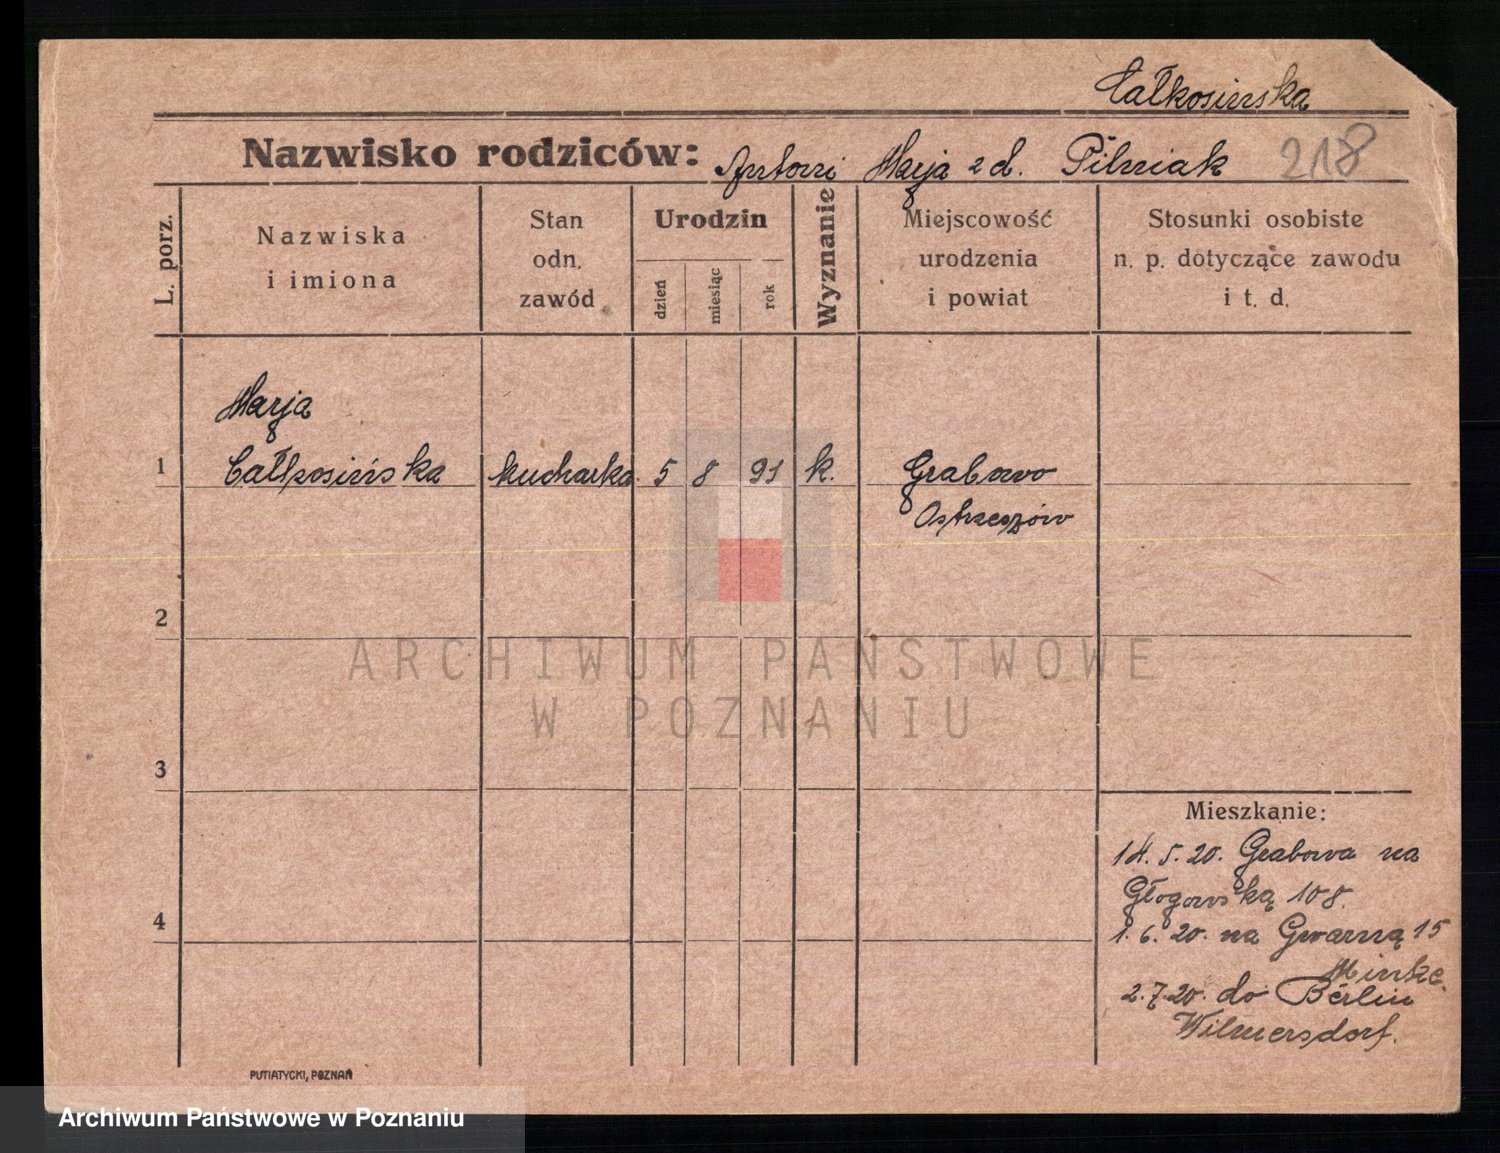 Całkosińska
Nazwisko rodziców: Antoni Marja z d. Pilniak 218
L. porz.
Nazwiska
i imiona
Stan
odn.
zawód
Urodzin
dzień
miesiąc
rok
Wyznanie
Miejscowość
urodzenia
i powiat
Stosunki osobiste
n. p. dotyczące zawodu
i t. d.
Marja
1 Całkosińska kucharka 5 8 91 k. Grabowo
Ostrzeszów
2
3
4
Mieszkanie:
14. 5. 20. Grabowa na
Głogowską 108.
1. 6. 20. na Gwarną 15
Minke.
2. 7. 20. do Berlin
Wilmersdorf.
PUTIATYCKI, POZNAŃ
ARCHIWUM PAŃSTWOWE
W POZNANIU
Archiwum Państwowe w Poznaniu